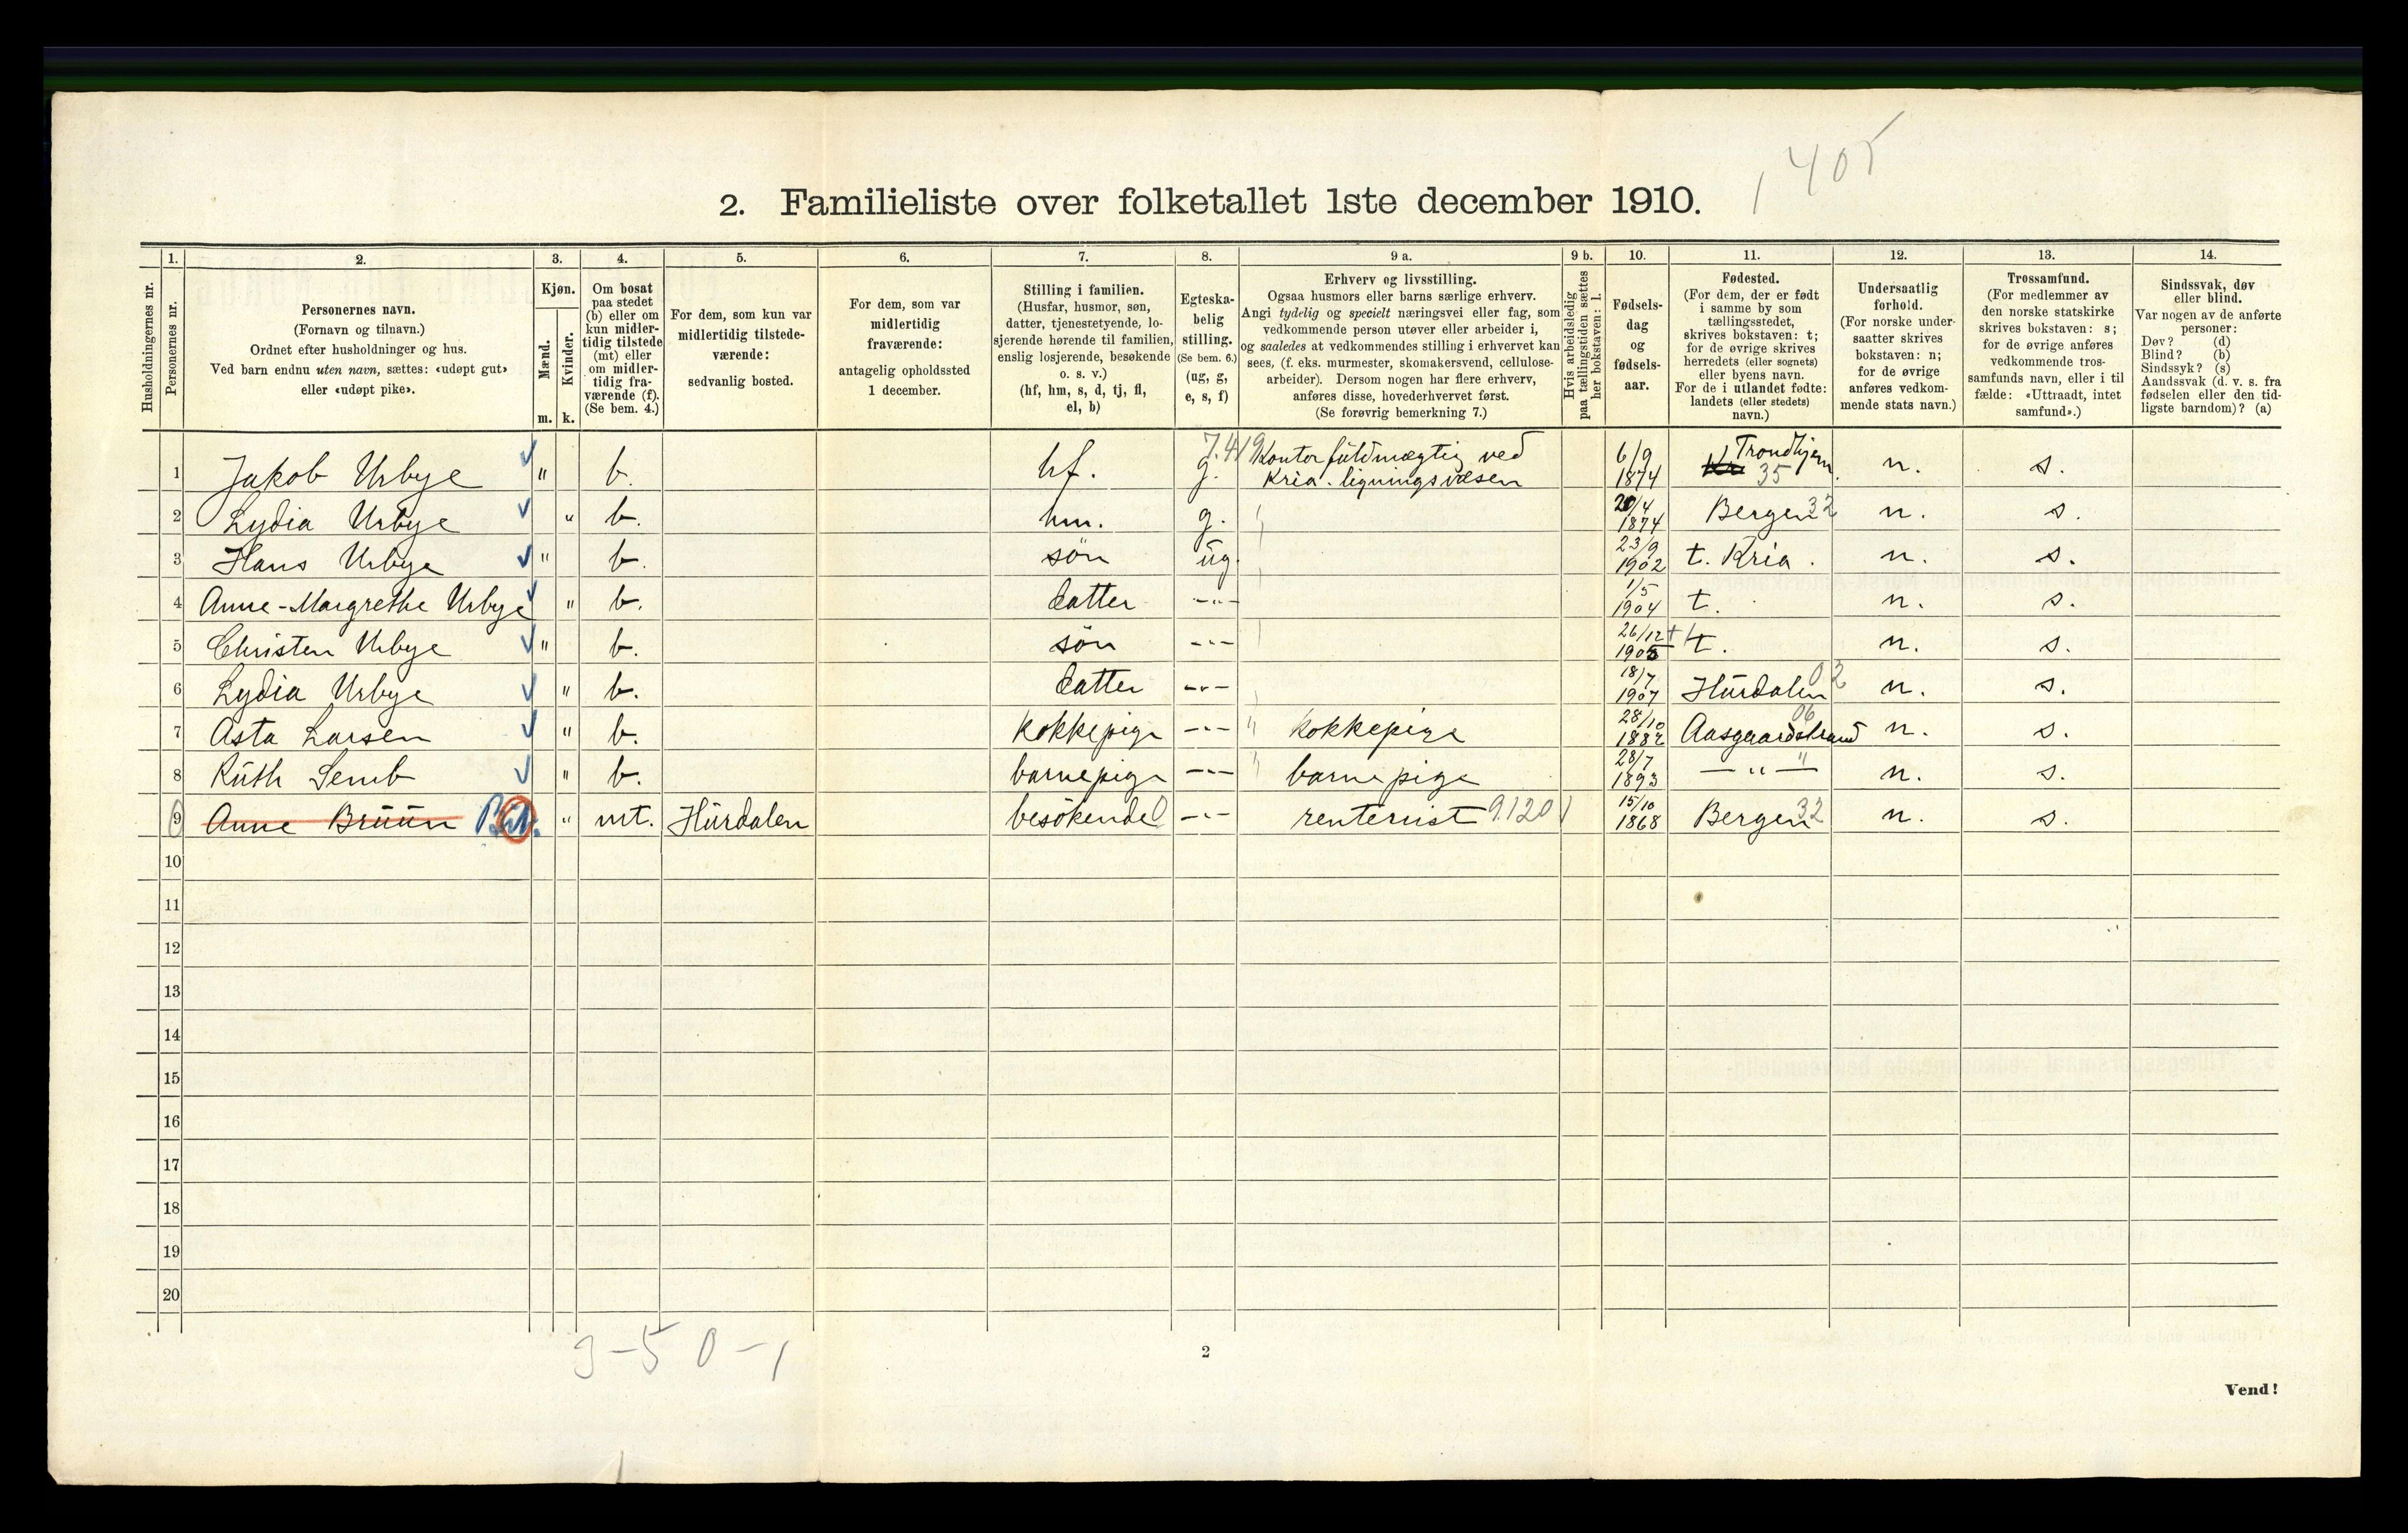 1405
2. Familieliste over folketallet 1ste december 1910.
Husholdningernes nr.
1. Personernes nr.
2. Personernes navn.
(Fornavn og tilnavn.)
Ordnet efter husholdninger og hus.
Ved barn endnu uten navn, sættes: «udøpt gut»
eller «udøpt pike».
3. Kjøn.
Mænd. m.
Kvinder. k.
4. Om bosat
paa stedet
(b) eller om
kun midler-
tidig tilstede
(mt) eller
om midler-
tidig fra-
værende (f).
(Se bem. 4.)
5. For dem, som kun var
midlertidig tilstede-
værende:
sedvanlig bosted.
6. For dem, som var
midlertidig
fraværende:
antagelig opholdssted
1 december.
7. Stilling i familien.
(Husfar, husmor, søn,
datter, tjenestetyende, lo-
sjerende hørende til familien,
enslig losjerende, besøkende
o. s. v.)
(hf, hm, s, d, tj, fl,
el, b)
8. Egteska-
belig
stilling.
(Se bem. 6.)
(ug, g,
e, s, f)
9 a. Erhverv og livsstilling.
Ogsaa husmors eller barns særlige erhverv.
Angi tydelig og specielt næringsvei eller fag, som
vedkommende person utøver eller arbeider i,
og saaledes at vedkommendes stilling i erhvervet kan
sees, (f. eks. murmester, skomakersvend, cellulose-
arbeider). Dersom nogen har flere erhverv,
anføres disse, hovederhvervet først.
(Se forøvrig bemerkning 7.)
9 b. Hvis arbeidsledig
paa tællingstiden sættes
her bokstaven: l.
10. Fødsels-
dag
og
fødsels-
aar.
11. Fødested.
(For dem, der er født
i samme by som
tællingsstedet,
skrives bokstaven: t;
for de øvrige skrives
herredets (eller sognets)
eller byens navn.
For de i utlandet fødte:
landets (eller stedets)
navn.)
12. Undersaatlig
forhold.
(For norske under-
saatter skrives
bokstaven: n;
for de øvrige
anføres vedkom-
mende stats navn.)
13. Trossamfund.
(For medlemmer av
den norske statskirke
skrives bokstaven: s;
for de øvrige anføres
vedkommende tros-
samfunds navn, eller i til
fælde: «Uttraadt, intet
samfund».)
14. Sindssvak, døv
eller blind.
Var nogen av de anførte
personer:
Døv? (d)
Blind? (b)
Sindssyk? (s)
Aandssvak (d. v. s. fra
fødselen eller den tid-
ligste barndom)? (a)
1 Jakob Urbye " b. hf. g. 7.419 Kontorfuldmægtig ved Kria. ligningsvæsen 6/9 1874 Kr Trondhjem. 35 n. s.
2 Lydia Urbye " b. hm. g. 20/4 1874 Bergen 32 n. s.
3 Hans Urbye " b. sön ug. 23/9 1902 t. Kria. n. s.
4 Anne-Margrethe Urbye " b. datter -"- 1/5 1904 t. n. s.
5 Christen Urbye " b. sön -"- 26/12 1905 t. n. s.
6 Lydia Urbye " b. datter -"- 18/7 1907 Hurdalen 02 n. s.
7 Asta Larsen " b. kokkepige -"- " kokkepige 28/10 1882 Aasgaardstrand 06 n. s.
8 Ruth Semb " b. barnepige -"- " barnepige 28/7 1893 -"- " n. s.
9 Anne Bruun " mt. Hurdalen besökende 0 -"- renterist 9.120 15/10 1868 Bergen 32 n. s.
10
11
12
13
14
15
16
17
18
19
20
3-5 0-1
2
Vend!